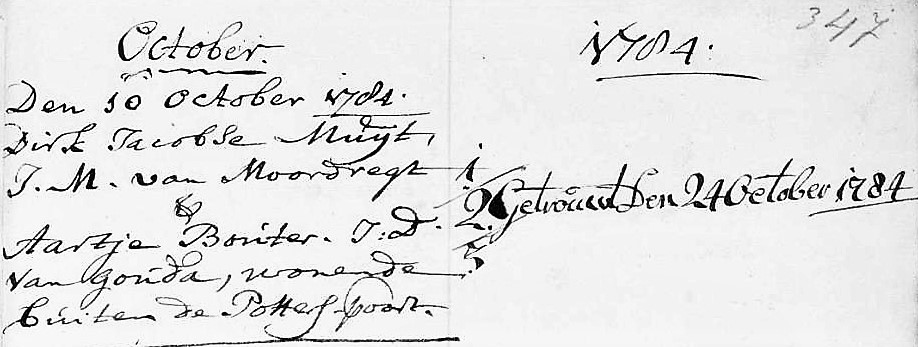 October.
1784.
347
Den 10 October 1784.
Dirk Jacobse Muijt,
J. M. van Moordregt
&
Aartje Bouter. J: D.
van Gouda, wonende
buiten de Potters-poort.
1
2. Getrouwt Den 24 October 1784
3